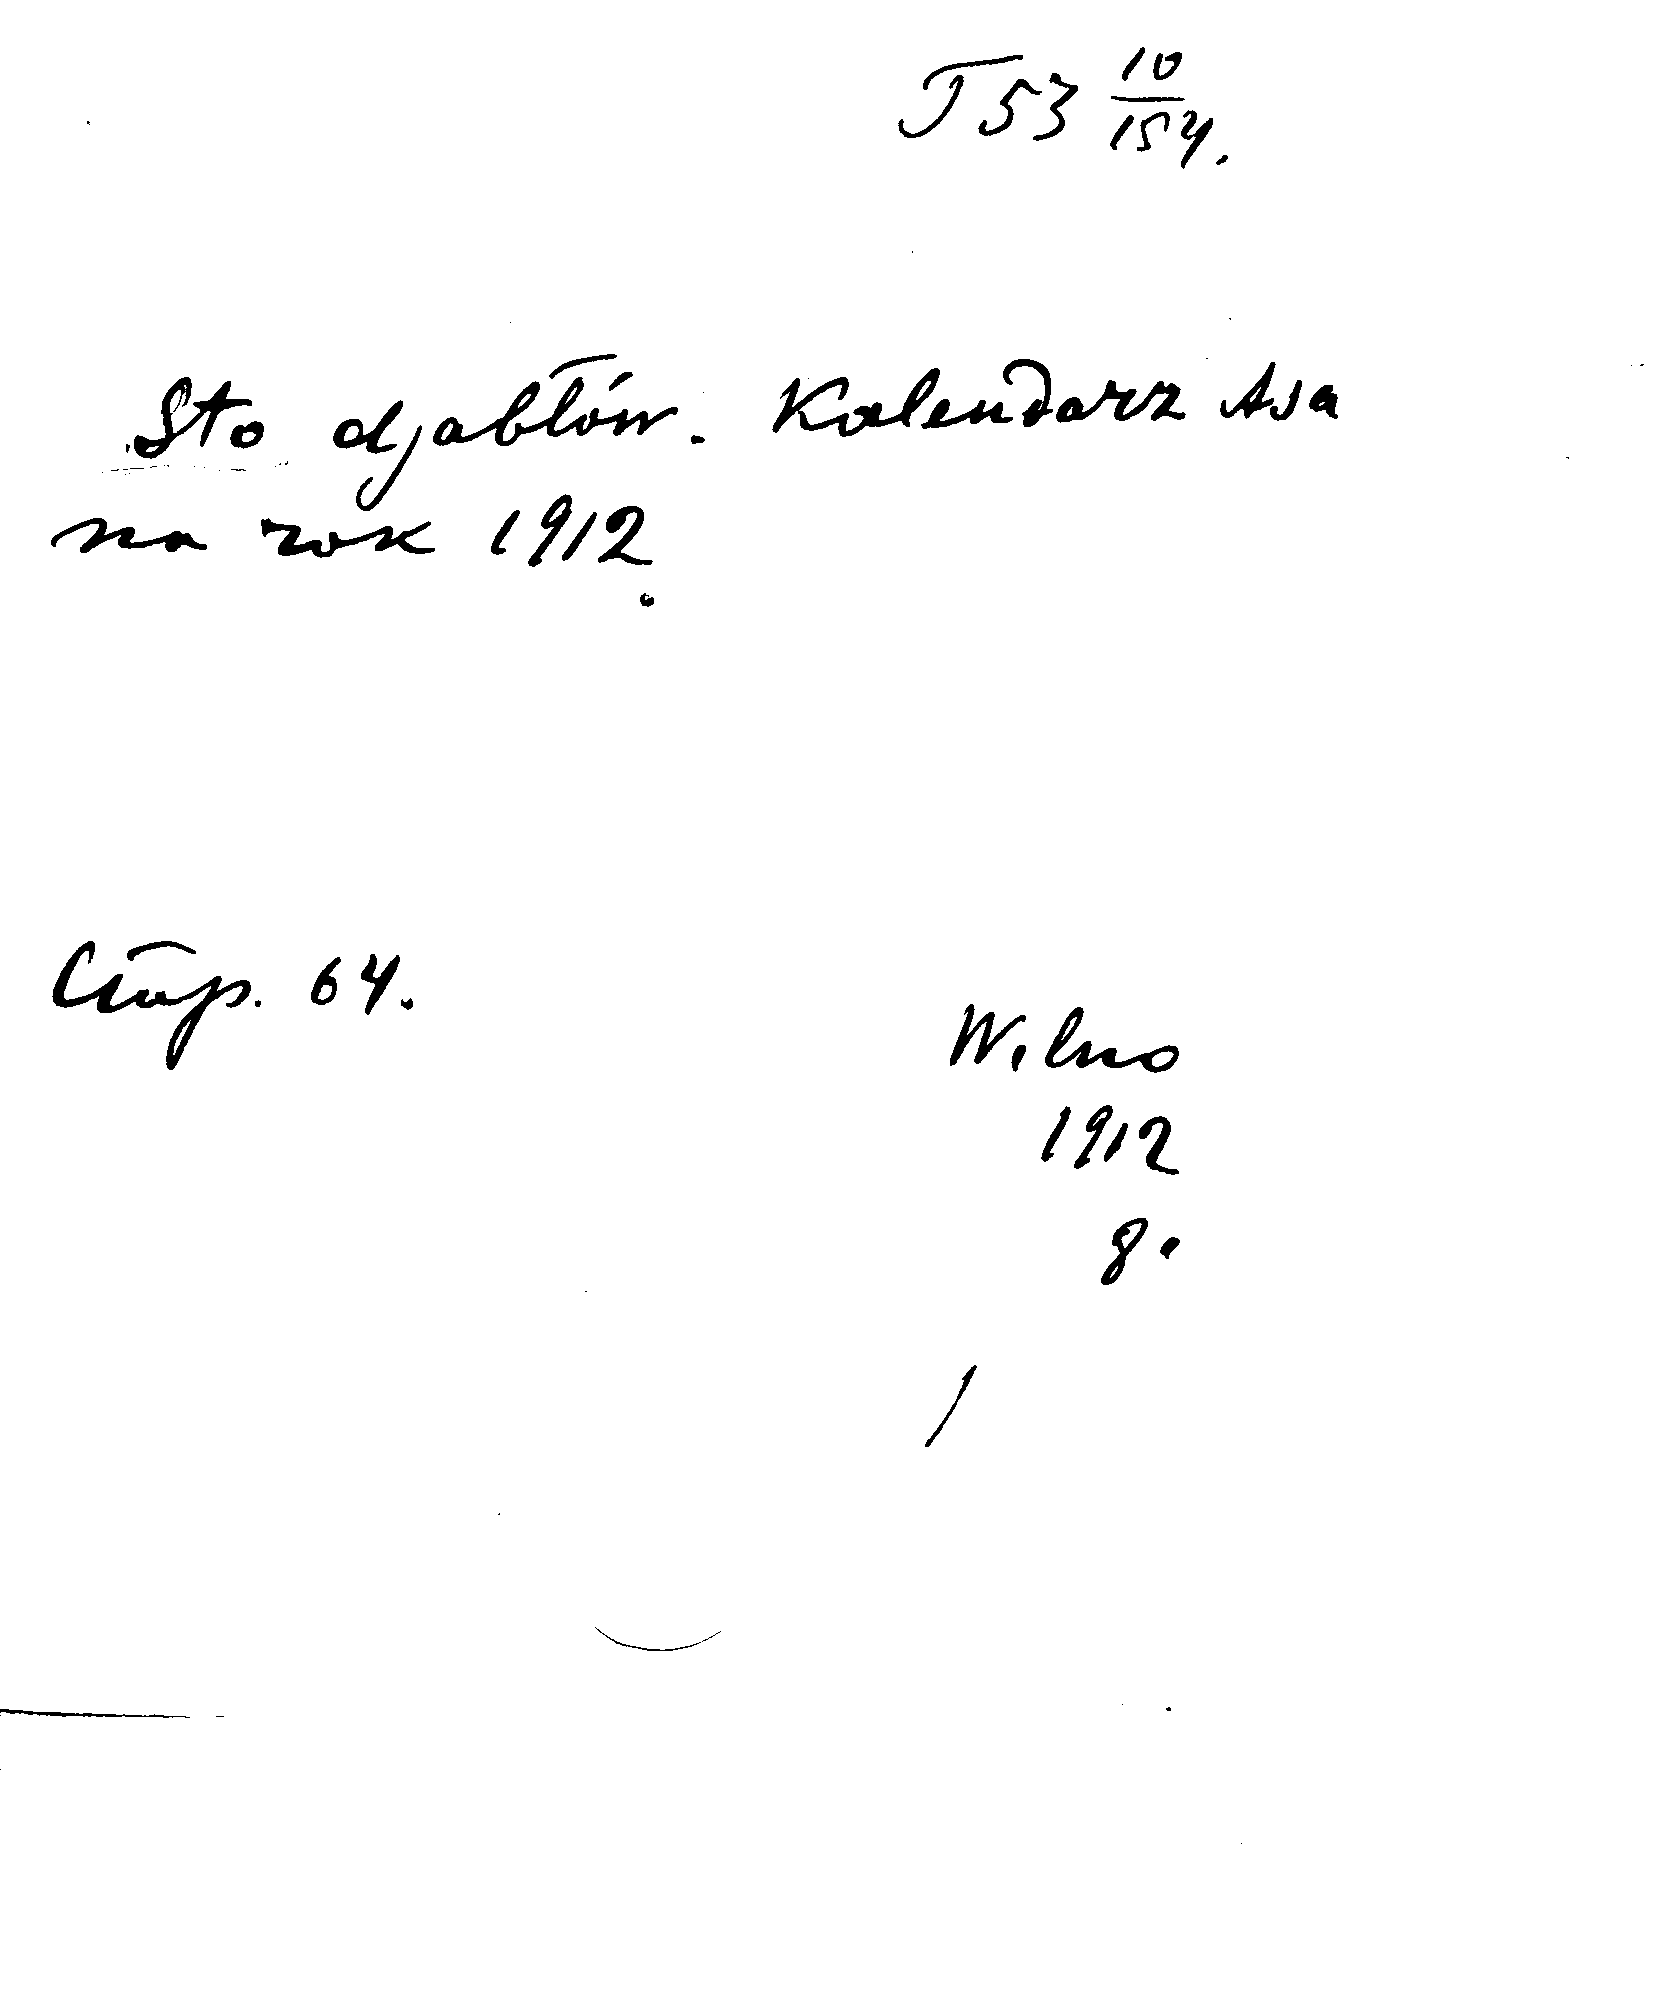 T 53 10/154.
Sto djabłów. Kalendarz Asa
na rok 1912.
Стр. 64.
Wilno
1912
8°